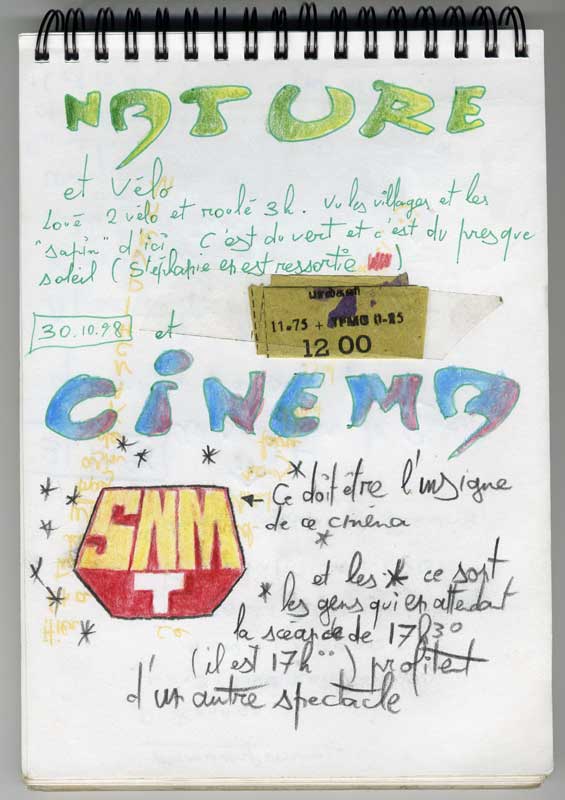 NATURE
et Vélo
Loué 2 vélo et roulé 3h. vu les villages et les
"sapin" d'ici c'est du vert et c'est du presque
soleil (Stéphanie en est ressortie)
11.75 + TPMG 0-25
12 00
30.10.98 et
CiNEMA
SNM
Ce doit être l'insigne
de ce cinéma
et les * ce sont
les gens qui en attendant
la scéance de 17h30
(il est 17h°°) profitent
d'un autre spectacle